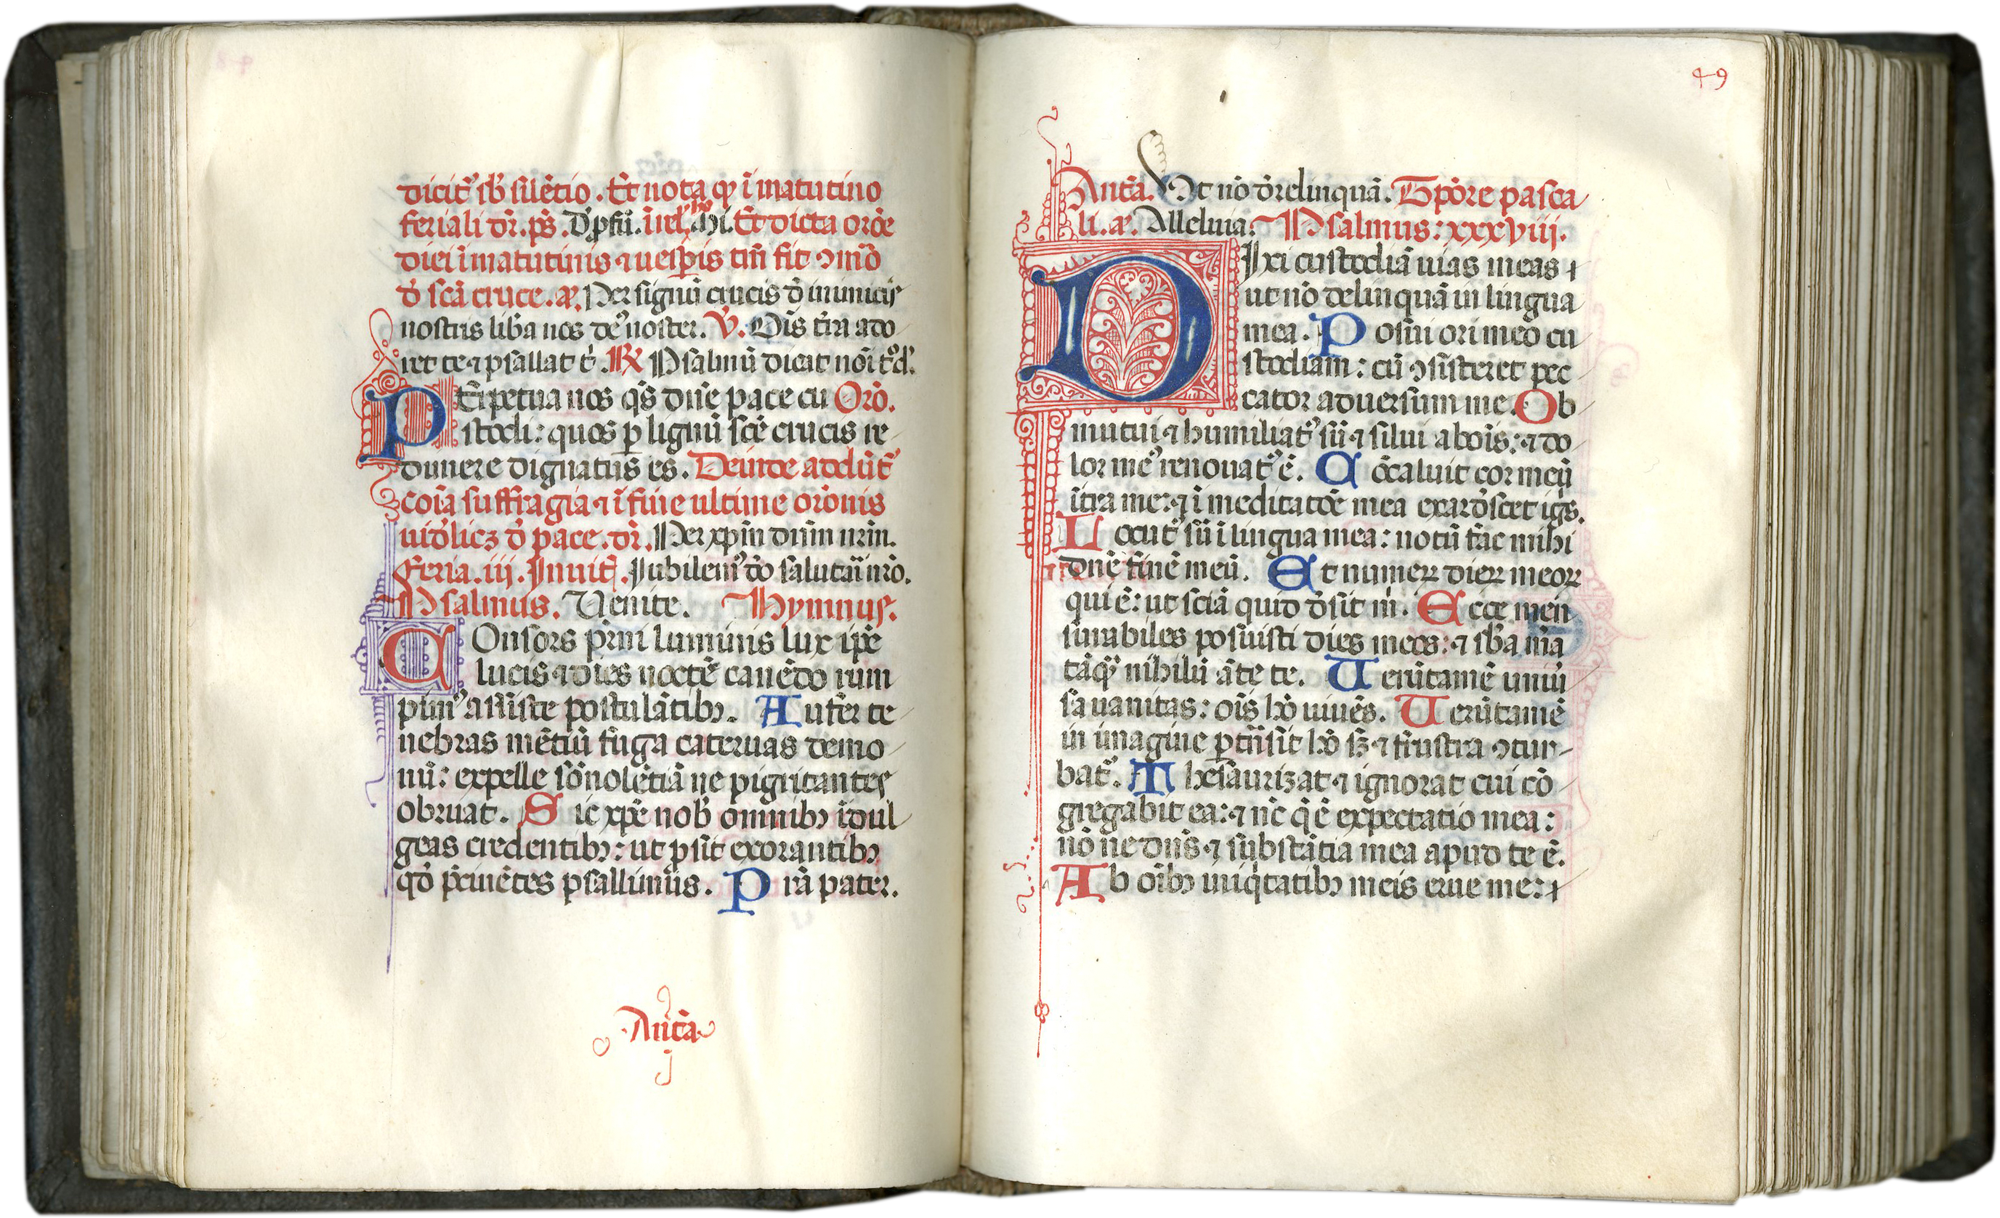 dicit᷒ sb᷒ silētio. Et nota qꝫ ī matutino
feriali dr̄. ps̄. D. pfū. īrel. hi. Et dicta orōe
diei ī matutinis ⁊ uesꝑis tm̄ fit ꝯmō
d̄ scā cruce. aꝝ. Per signū crucis d̄ inimicis
nostris liba nos de᷒ noster. V̄. Oīs t̄ra ado
ret te ⁊ psallat t̄. R̄ Psalmū dicat noī t᷒ d.
PErpetua nos qs̄ dn̄e pace cu Orō.
stodi: quos ꝑ lignū scē crucis re
dimere dignatus es. Deinde addūt᷒
coīa suffragia ⁊ ī fine ultime orōnis
uidelicꝫ d̄ pace. dr̄. Per xp̄m dn̄m nr̄m.
Feria. iii. Inuit̄. Iubilem᷒ dō salutaī nrō.
Psalmus. Venite. Hymnus.
COnsors pr̄ni luminis lux ip̄e
lucis ⁊ dies noctē canēdo rum
pim᷒ assiste postulātibꝫ. Aufer te
nebras mētiū fuga cateruas demo
nū: expelle sōnolētiā ne pigritantes
obruat. Sic xp̄e nob̄ omnibꝫ īdul
geas credentibꝫ: ut psit exorantibꝫ
qd̄ p̄cinētes psallimus. P rā pater.
Antā
49
Antā. Vt nō drelinquā. Tpōre pasca
li. aꝝ. Alleluia. Psalmus: xxxviii.
DIxi custodiā uias meas ⁊
ut nō delinquā in lingua
mea. Posui ori meo cu
stodiam: cū ꝯsisteret pec
cator aduersum me. Ob
mutui ⁊ humiliat᷒ sū ⁊ silui a boīs: ⁊ do
lor me᷒ renouat᷒ ē. Cōcaluit cor meū
ītra me: ⁊ ī meditatōe mea exardscet igs̄.
Locut᷒ sū ī lingua mea: notū fāc mihi
dn̄e finē meū. Et numeꝝ dieꝝ meoꝝ
qui ē: ut sciā quid dsit m̄. Ecce men
surabiles posuisti dies meos: ⁊ sb̄a mā
tāqꝫ nihilū āte te. Verūtamē uniū
sa uanitas: oīs hō uiuēs. Verūtamē
in imagine ꝑtrāsit hō sꝫ ⁊ frustra ꝯtur-
bat᷒. Thesaurizat ⁊ ignorat cui cō
gregabit ea: ⁊ nc̄ q̄ ē expectatio mea:
nō ne dn̄s ⁊ substātia mea apud te ē.
Ab oībꝫ iniqtatibꝫ meis erue me: ⁊